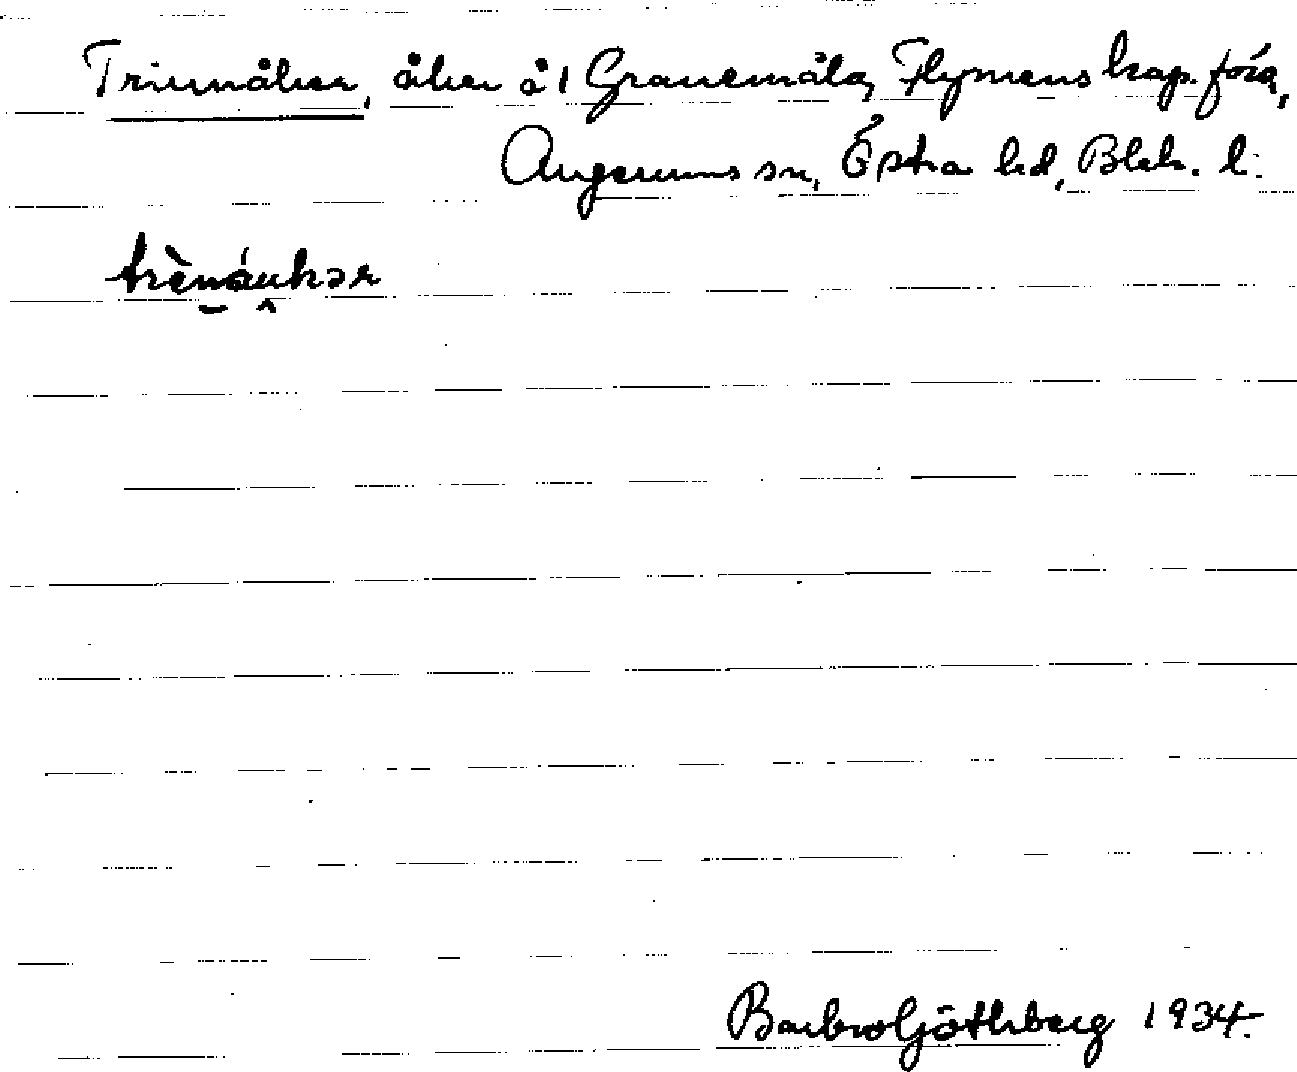 Triunnåker, åker å 1 Granemåla, Flymens kap. förs.,
Augerums sn, Östra hd, Blek. l.
trènáukər
Barbro Göthberg 1934.